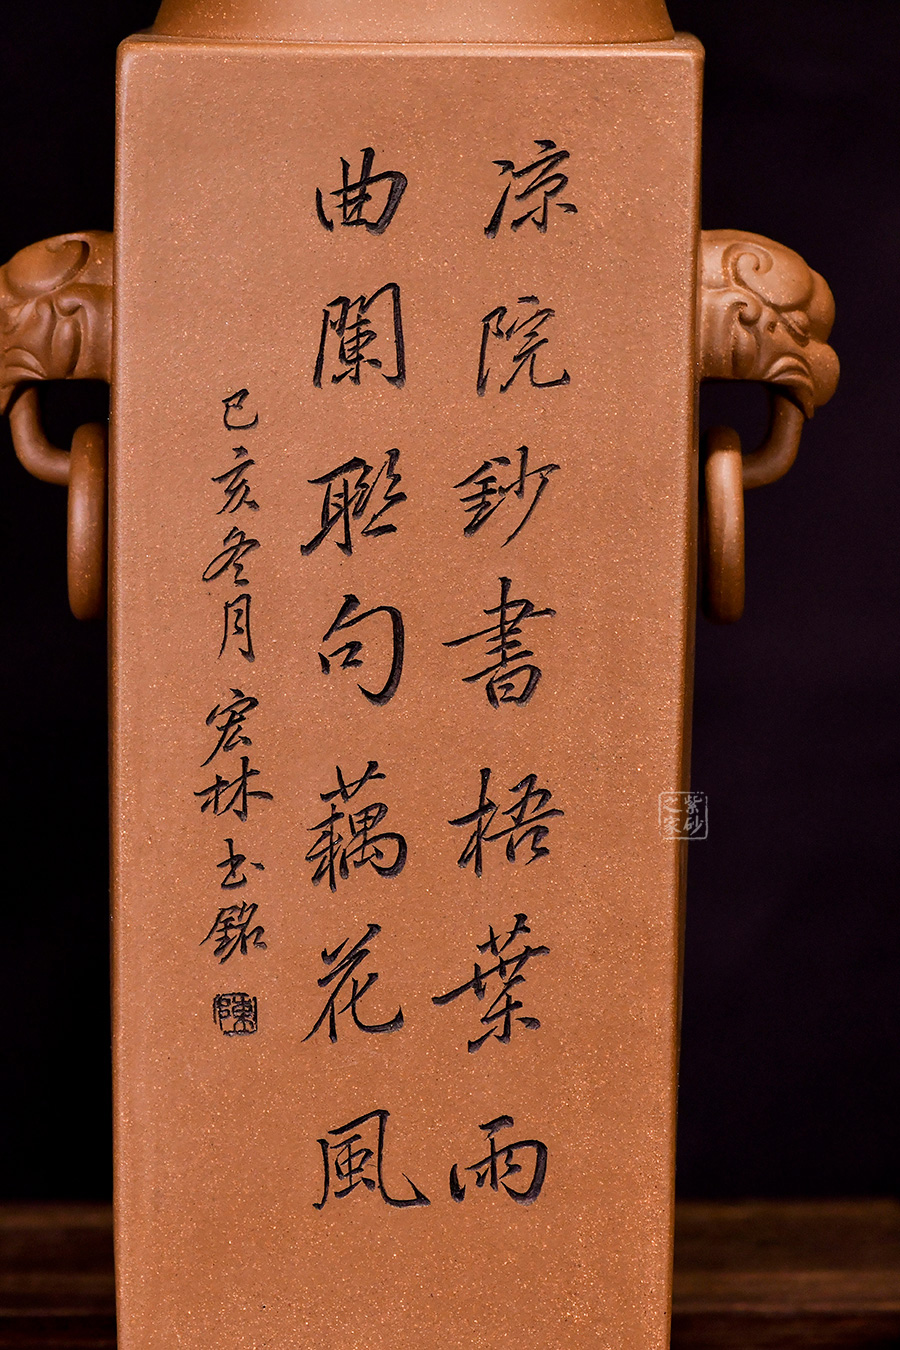 凉院鈔書梧葉雨
曲闌聯句藕花風
己亥冬月
宏林書銘
陳
紫砂之家